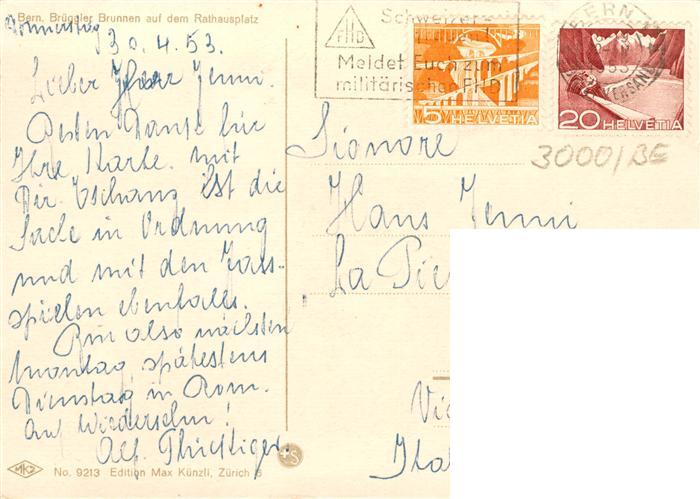 Bern. Brüggler Brunnen auf dem Rathausplatz
Donnerstag
30.4.53.
Lieber Herr Jenni.
Besten Dank für
Ihre Karte. Mit
Dir. Tschanz ist die
Sache in Ordnung
und mit den Jass-
spielen ebenfalls.
Bin also nächsten
Montag, spätestens
Dienstag in Rom.
Auf Wiedersehn!
Alf.
No. 9213 Edition Max Künzli, Zürich 6
MKZ
Schweizer-
FHD
Meldet Euch zum
militärischen FHD
5 HELVETIA
20 HELVETIA
BERN
3000/BE
Signore
Hans Jenni
La Pie
Via
Ital